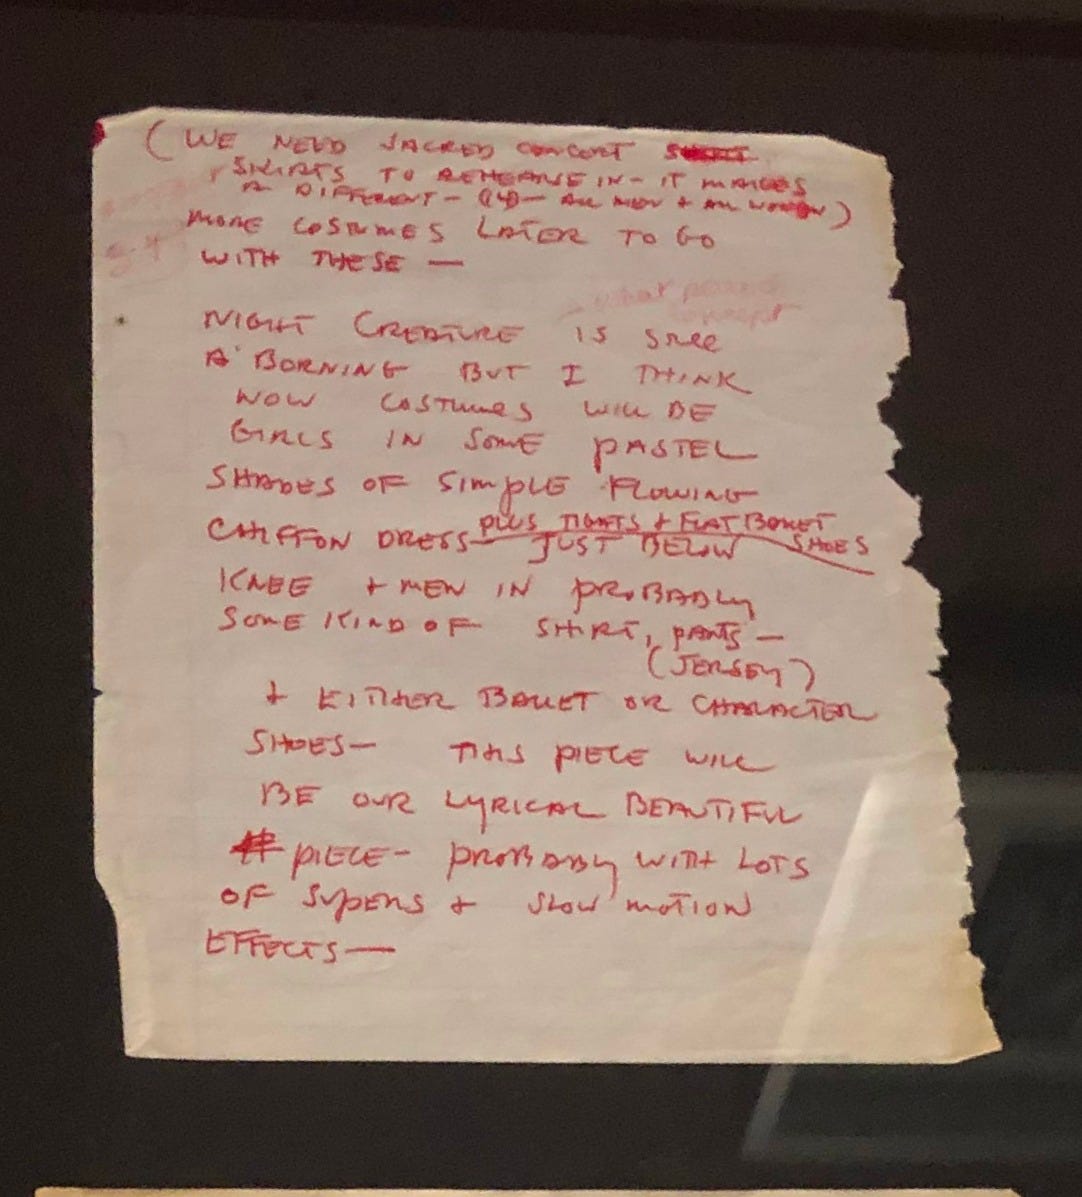 (WE NEED SACRED CONCERT
SKIRTS TO REHEARSE IN - IT MAKES
A DIFFERENT - (14) - ALL MEN + ALL WOMEN)
MORE COSTUMES LATER TO GO
WITH THESE —
NIGHT CREATURE IS STILL
A'BORNING BUT I THINK
NOW COSTUMES WILL BE
GIRLS IN SOME PASTEL
SHADES OF SIMPLE FLOWING
PLUS TIGHTS + FLAT BALLET
CHIFFON DRESS - JUST BELOW SHOES
KNEE + MEN IN PROBABLY
SOME KIND OF SHIRT, PANTS —
(JERSEY)
+ EITHER BALLET OR CHARACTER
SHOES — THIS PIECE WILL
BE OUR LYRICAL BEAUTIFUL
PIECE - PROBABLY WITH LOTS
OF SUPERS + SLOW MOTION
EFFECTS —